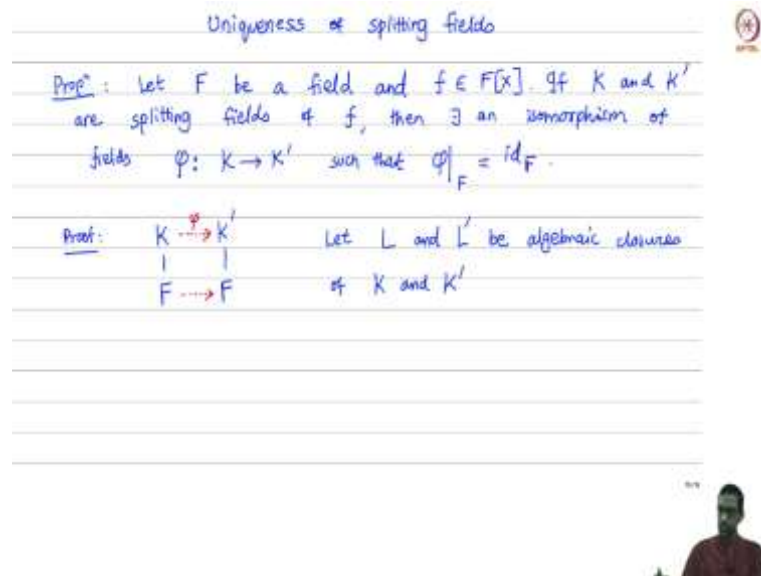 Uniqueness of splitting fields
Propⁿ: Let F be a field and f ∈ F[x]. If K and K'
are splitting fields of f, then ∃ an isomorphism of
fields φ: K → K' such that φ|_F = id_F.
Proof: K ⇢^φ K' Let L and L' be algebraic closures
| |
F ⇢ F of K and K'